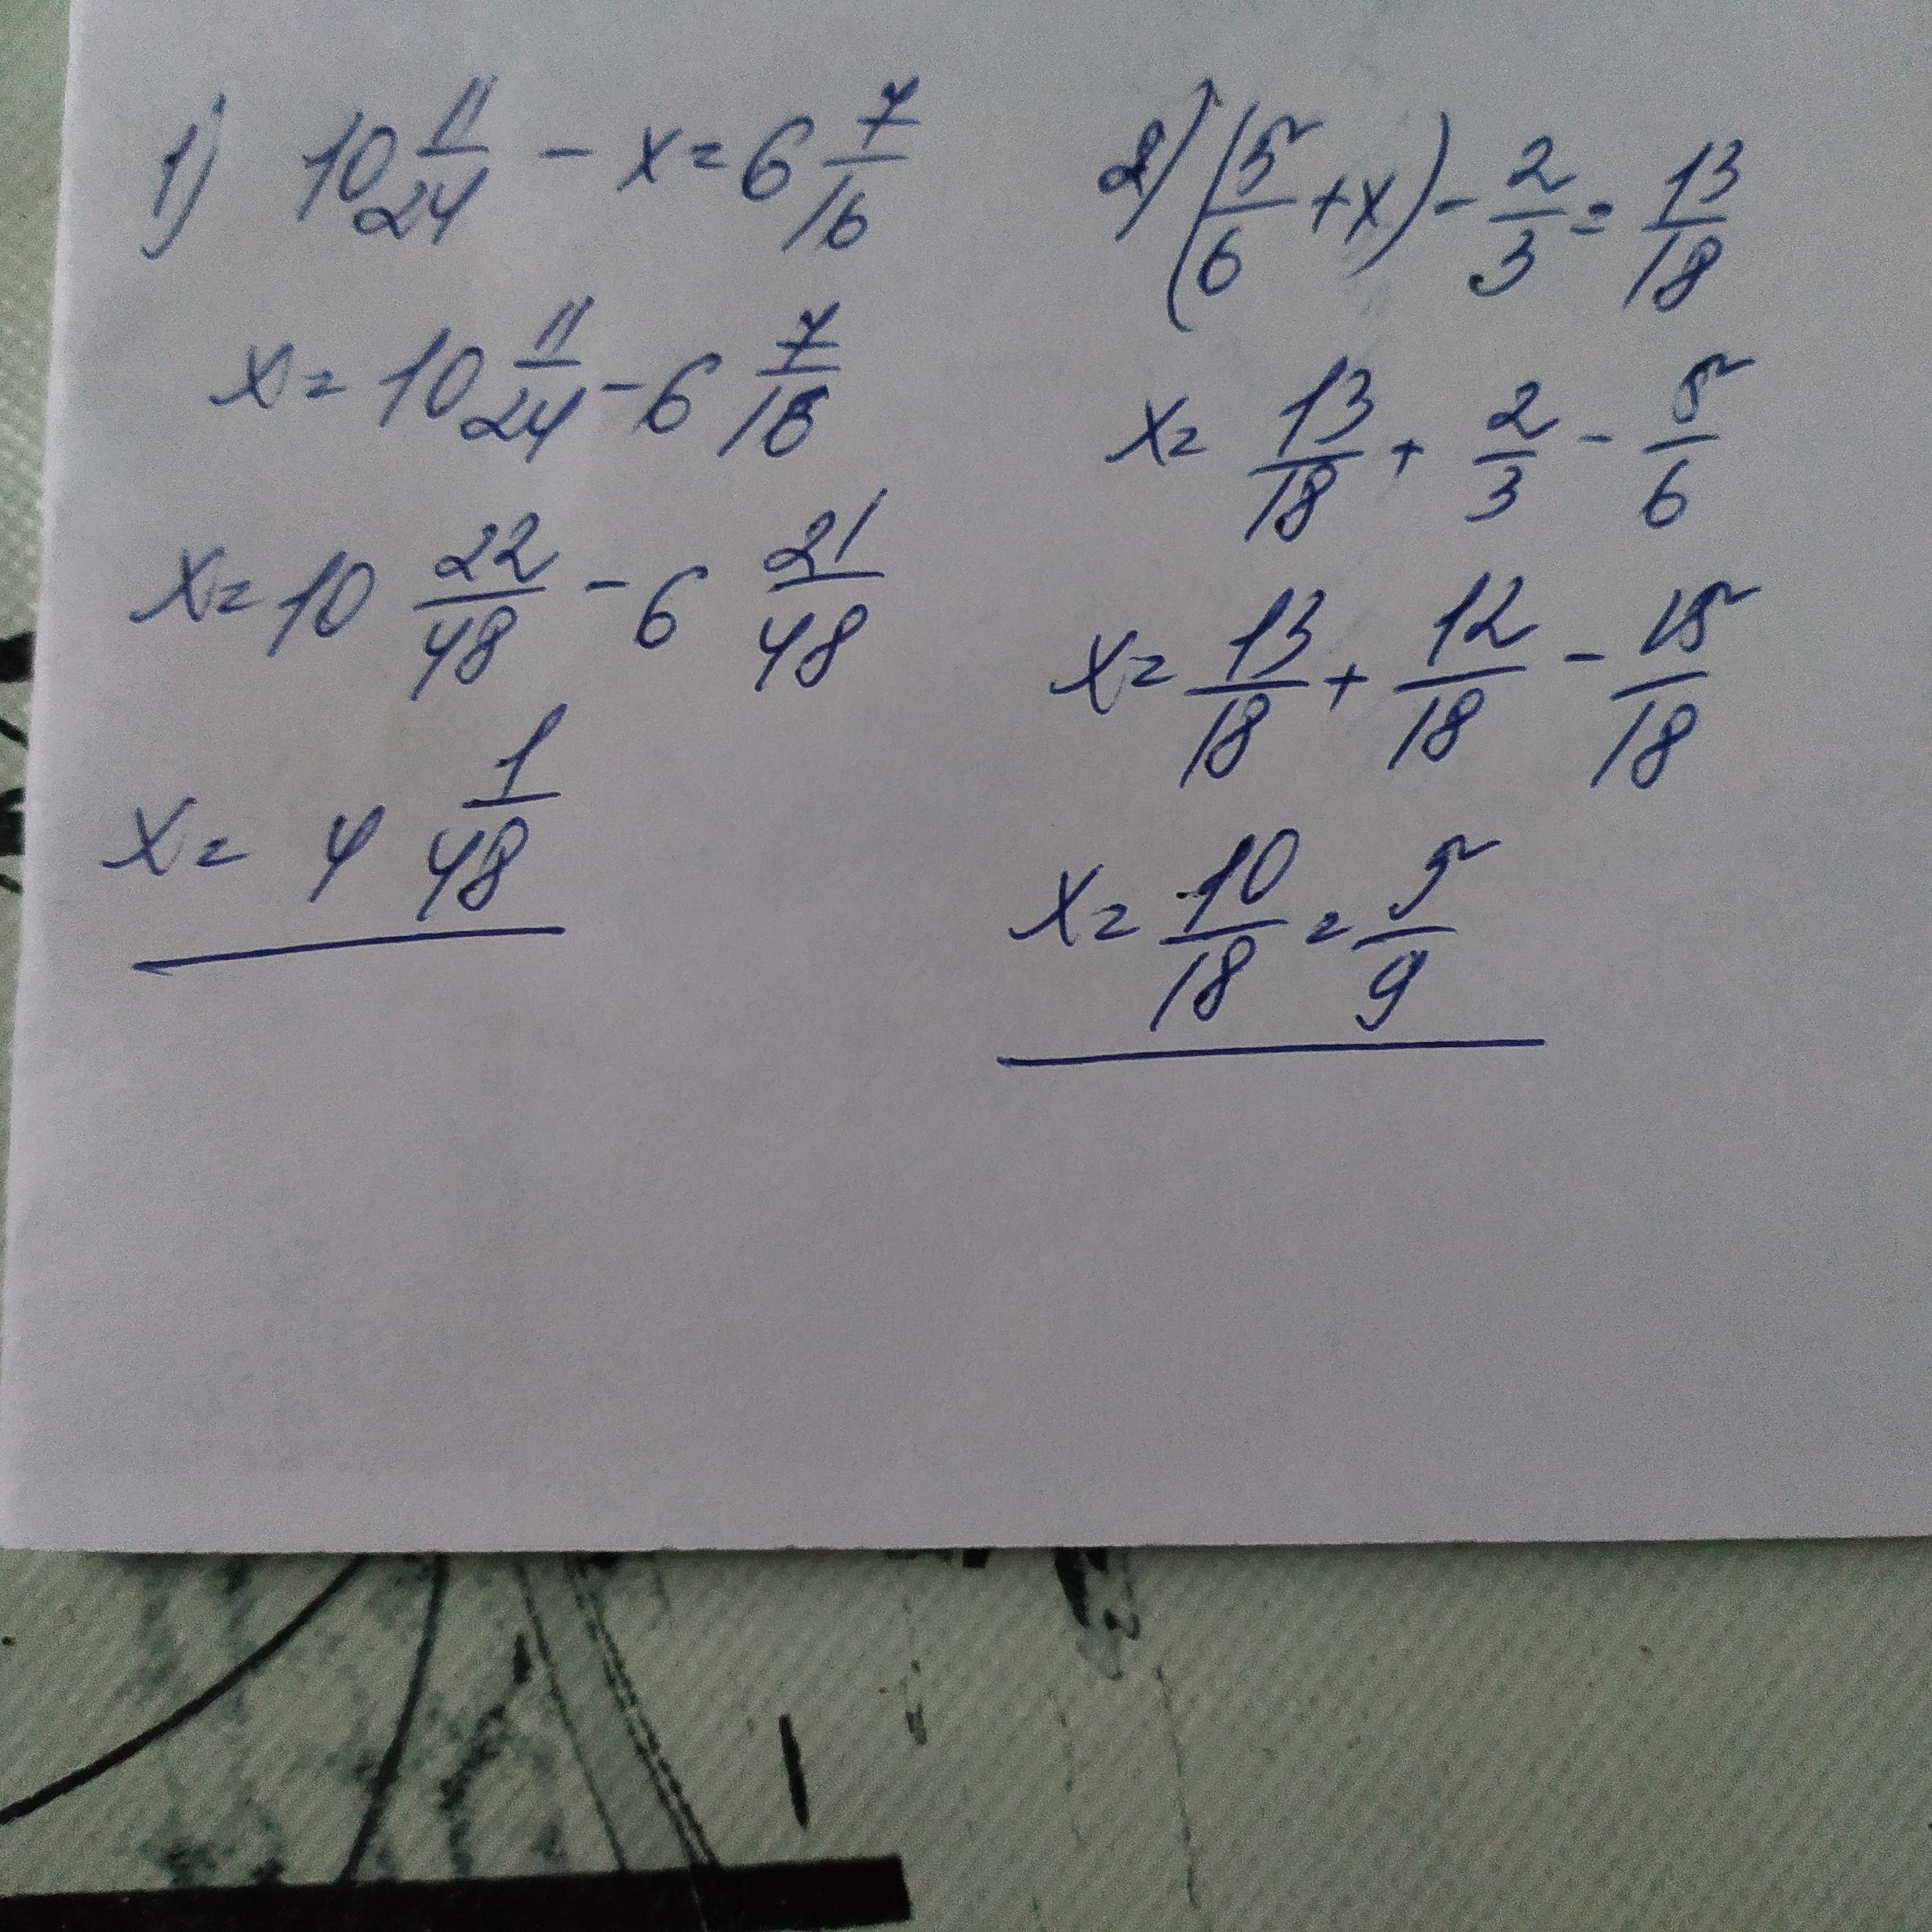 1) 10 11/24 - x = 6 7/16
x = 10 11/24 - 6 7/16
x = 10 22/48 - 6 21/48
x = 4 1/48
2) (5/6 + x) - 2/3 = 13/18
x = 13/18 + 2/3 - 5/6
x = 13/18 + 12/18 - 15/18
x = 10/18 = 5/9